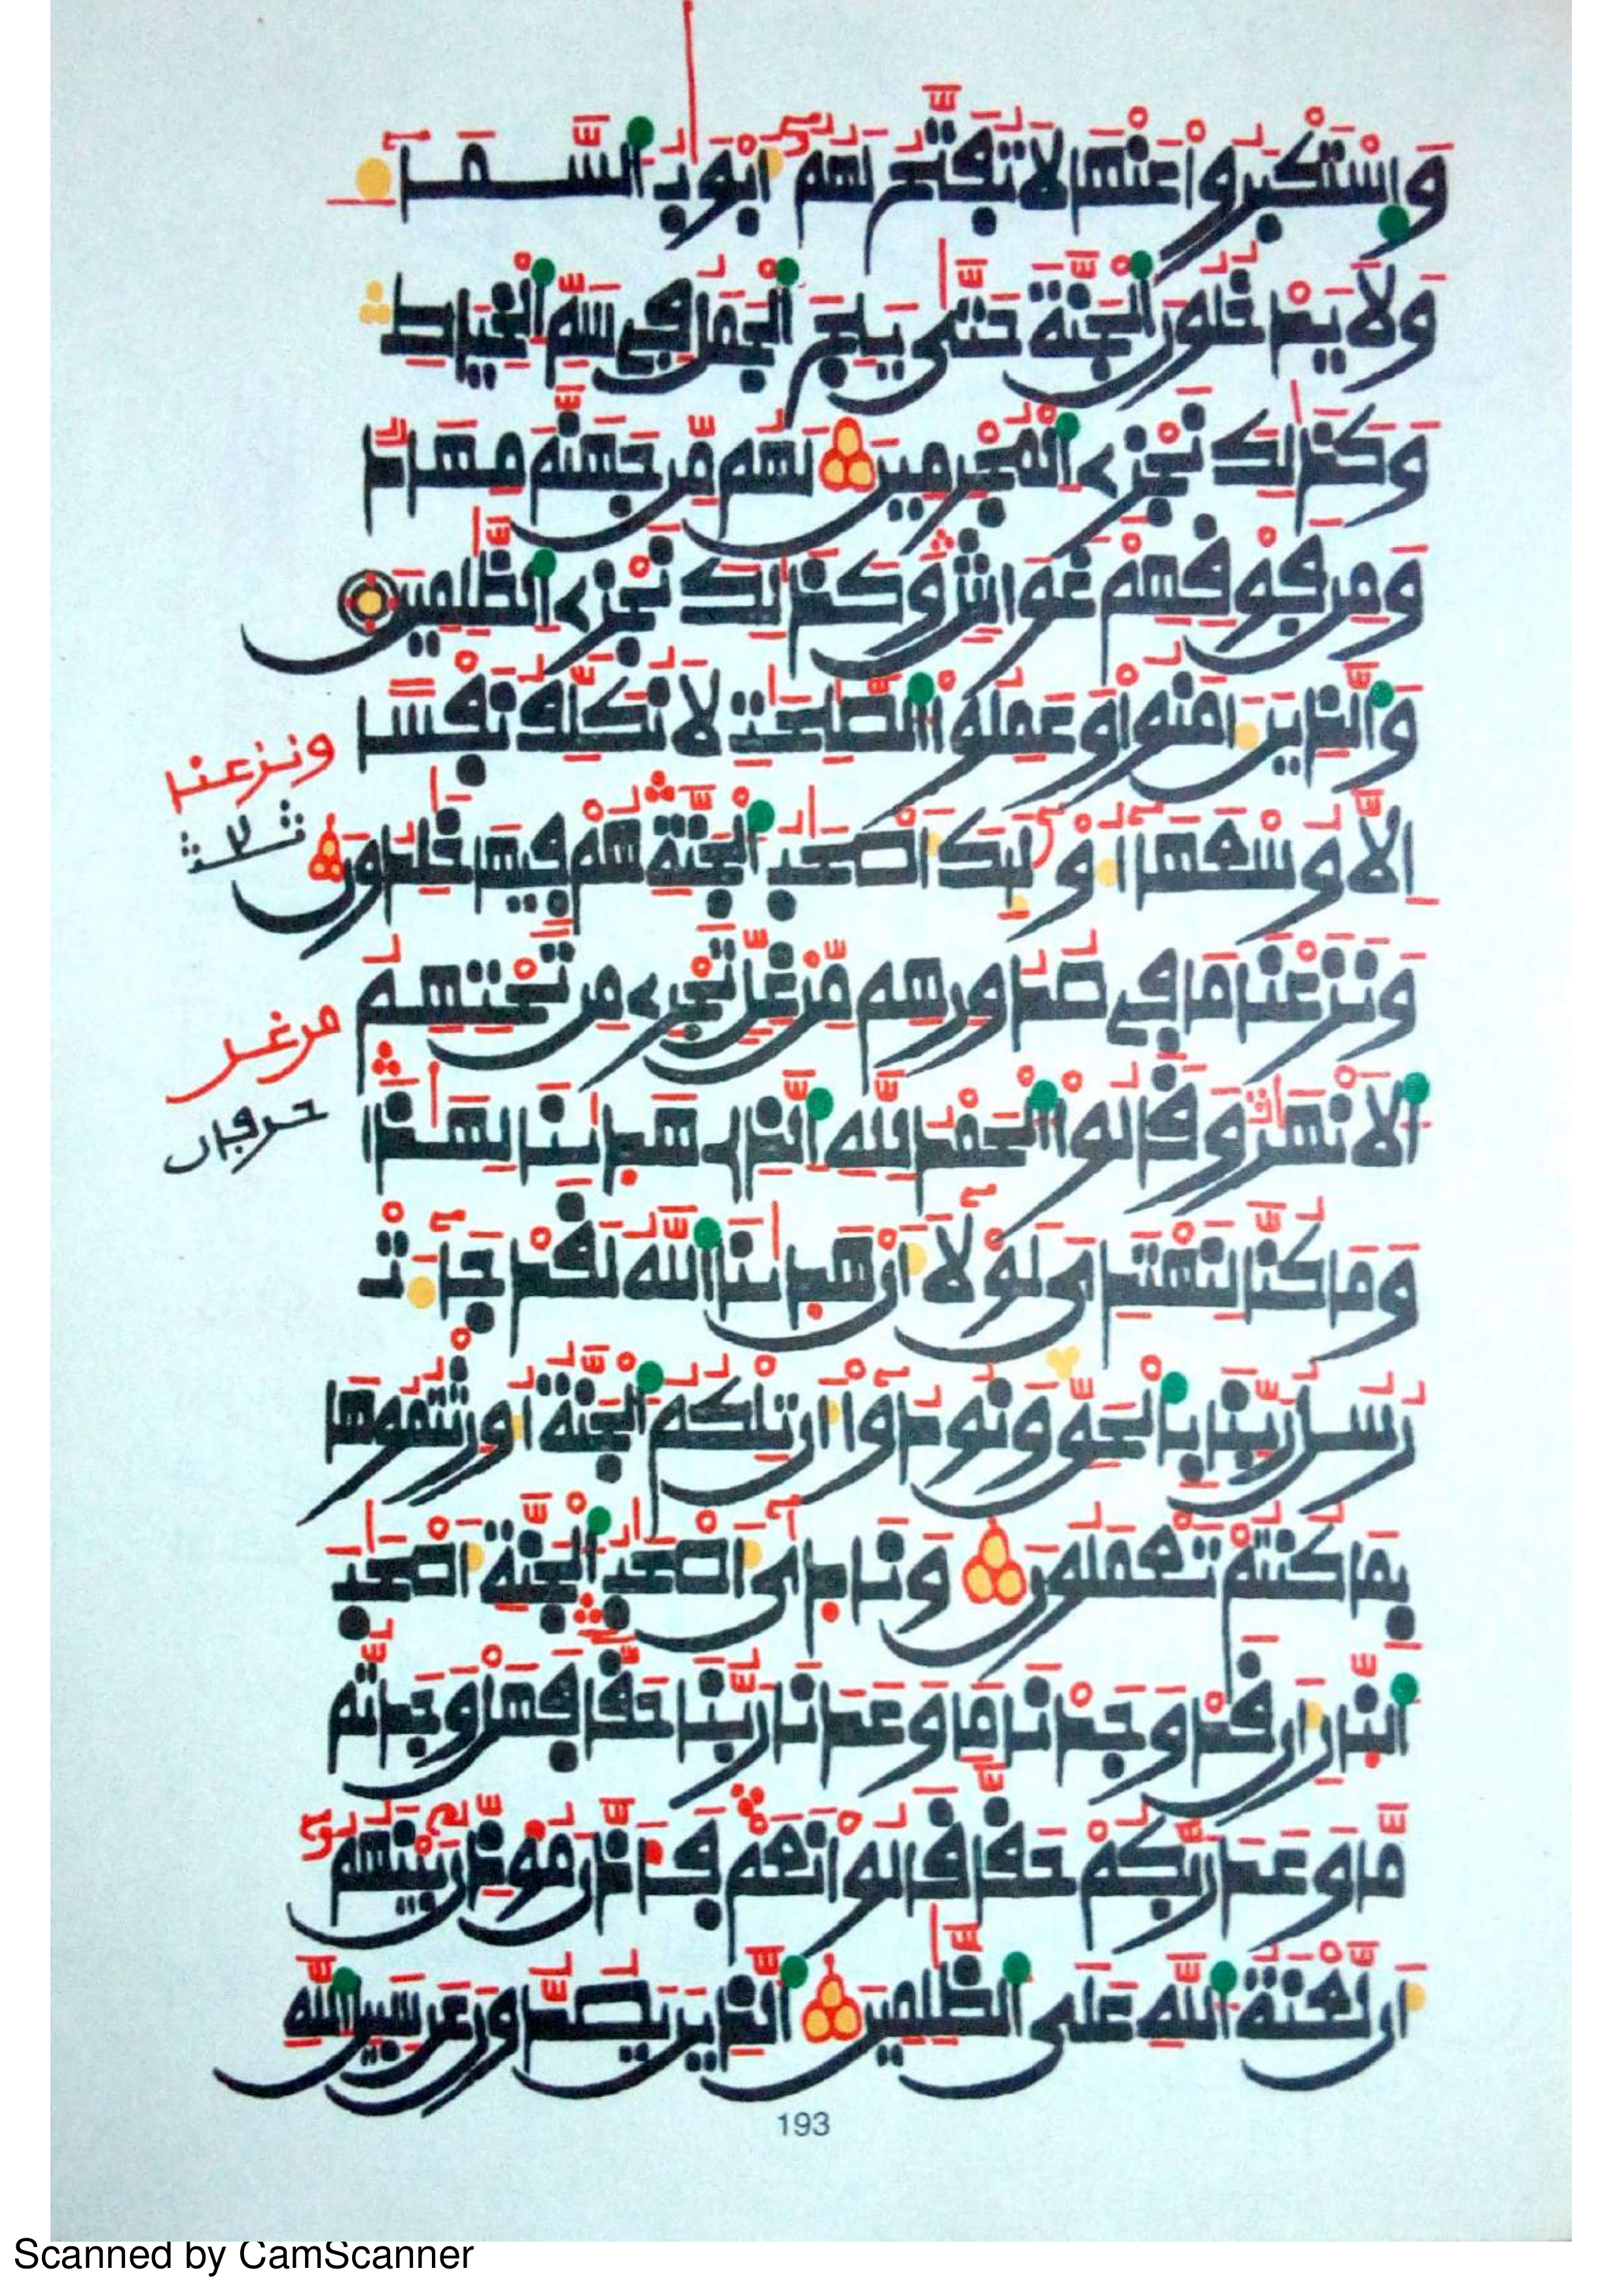 وَاسْتَكْبَرُواْ عَنْهَا لَا تُفَتَّحُ لَهُمُۥٓ أَبْوَٰبُ اُ۬لسَّمَآءِ
وَلَا يَدْخُلُونَ اَ۬لْجَنَّةَ حَتَّىٰ يَلِجَ اَ۬لْجَمَلُ فِے سَمِّ اِ۬لْخِيَاطِ
وَكَذَٰلِكَ نَجْزِے اِ۬لْمُجْرِمِينَ لَهُم مِّن جَهَنَّمَ مِهَادٌ
وَمِن فَوْقِهِمْ غَوَاشٍ وَكَذَٰلِكَ نَجْزِے اِ۬لظَّٰلِمِينَ
وَالذِينَ ءَامَنُواْ وَعَمِلُواْ اُ۬لصَّٰلِحَٰتِ لَا نُكَلِّفُ نَفْساً
اِلَّا وُسْعَهَآ أُوْلَٰٓئِكَ أَصْحَٰبُ اُ۬لْجَنَّةِ هُمْ فِيهَا خَٰلِدُونَ
وَنَزَعْنَا مَا فِے صُدُورِهِم مِّنْ غِلٍّ تَجْرِے مِن تَحْتِهِمُ
اُ۬لَانْهَٰرُ وَقَالُواْ اُ۬لْحَمْدُ لِلهِ اِ۬لذِے هَدَىٰنَا لِهَٰذَا
وَمَا كُنَّا لِنَهْتَدِيَ لَوْلَآ أَنْ هَدَىٰنَا اَ۬للَّهُ لَقَدْ جَآءَتْ
رُسُلُ رَبِّنَا بِالْحَقِّ وَنُودُوٓاْ أَن تِلْكُمُ اُ۬لْجَنَّةُ أُورِثْتُمُوهَا
بِمَا كُنتُمْ تَعْمَلُونَ وَنَادَىٰٓ أَصْحَٰبُ اُ۬لْجَنَّةِ أَصْحَٰبَ
اَ۬لنَّارِ أَن قَدْ وَجَدْنَا مَا وَعَدَنَا رَبُّنَا حَقّاً فَهَلْ وَجَدتُّم
مَّا وَعَدَ رَبُّكُمْ حَقّاً قَالُواْ نَعَمْ فَأَذَّنَ مُؤَذِّنٌ بَيْنَهُمُۥٓ
أَن لَّعْنَةُ اُ۬للَّهِ عَلَى اَ۬لظَّٰلِمِينَ اَ۬لذِينَ يَصُدُّونَ عَن سَبِيلِ اِ۬للَّهِ
ونزعنا
من غل
193
Scanned by CamScanner